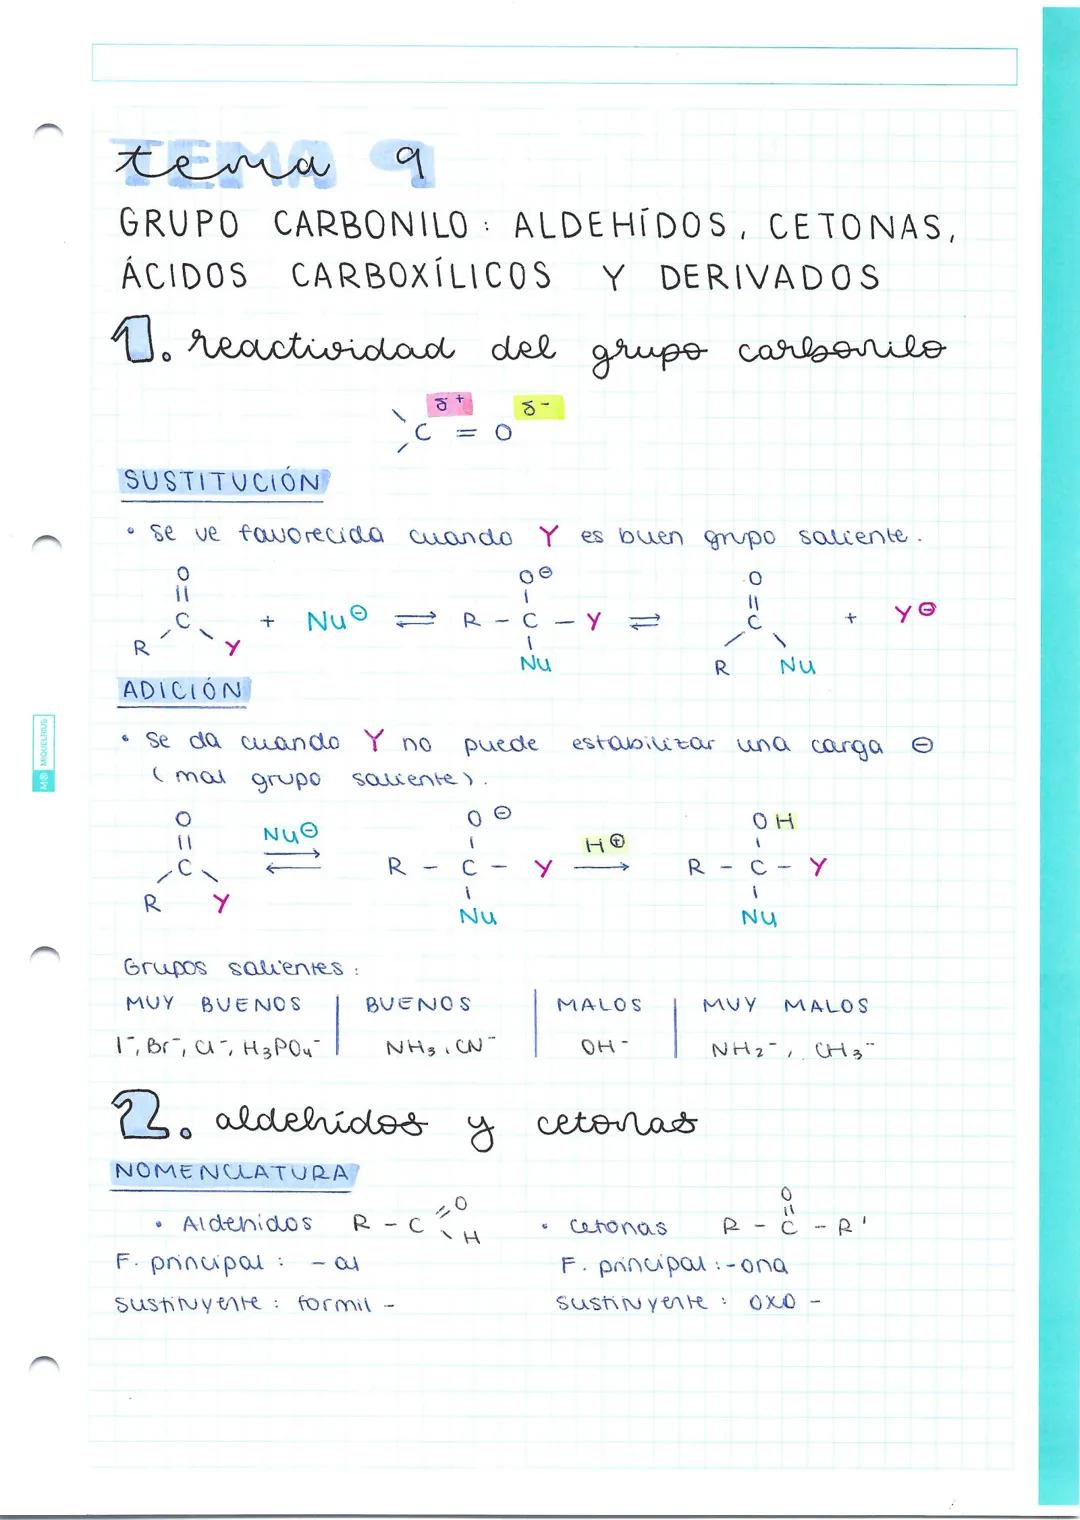 tema 9
GRUPO CARBONILO: ALDEHÍDOS, CETONAS,
ÁCIDOS CARBOXÍLICOS Y DERIVADOS
1. reactividad del grupo carbonilo
δ+ δ-
C = O
SUSTITUCIÓN
• Se ve favorecida cuando Y es buen grupo saliente.
O O⊖ O
R C Y + Nu⊖ ⇌ R - C - Y ⇌ R C Nu + Y⊖
Nu
ADICIÓN
• Se da cuando Y no puede estabilizar una carga ⊖
(mal grupo saliente).
O Nu⊖ O⊖ H⊕ OH
R C Y ⇌ R - C - Y → R - C - Y
Nu Nu
Grupos salientes:
MUY BUENOS | BUENOS | MALOS | MUY MALOS
I⁻, Br⁻, Cl⁻, H₃PO₄⁻ | NH₃, CN⁻ | OH⁻ | NH₂⁻, CH₃⁻
2. aldehídos y cetonas
NOMENCLATURA
• Aldehidos R - C = O H • Cetonas R - C - R' O
F. principal: -al F. principal: -ona
sustituyente: formil- sustituyente: oxo-
MR MIQUELRIUS